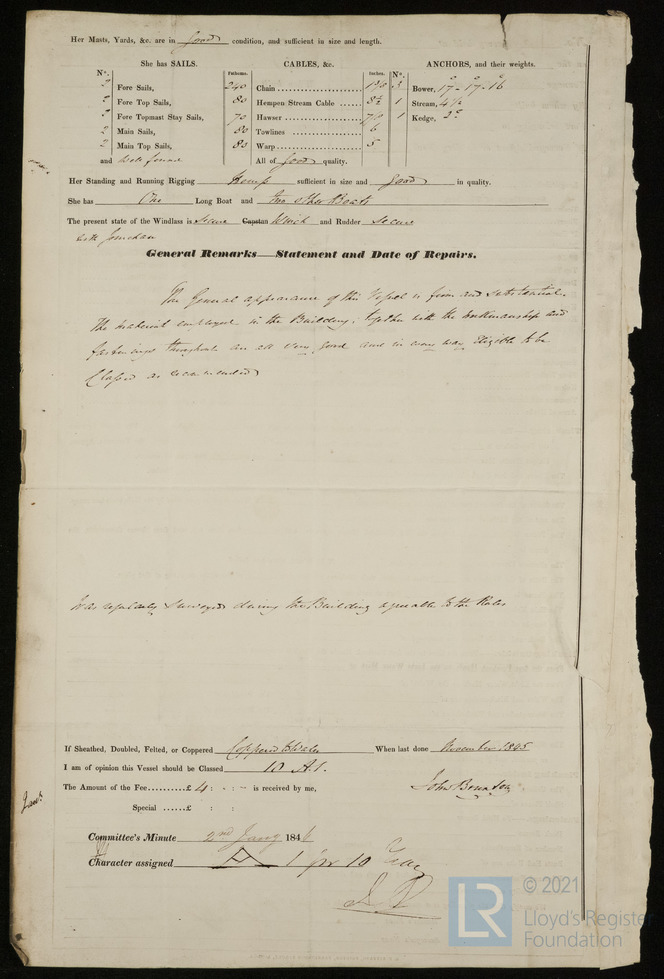 Her Masts, Yards, &c. are in good condition, and sufficient in size and length.
She has SAILS. CABLES, &c. ANCHORS, and their weights.
N°. Fathoms. Inches. N°.
2 Fore Sails, 240 Chain 3 Bower, 17 - 17 - 16
2 Fore Top Sails, 80 Hempen Stream Cable 8½ 1 Stream, 4½
2 Fore Topmast Stay Sails, 70 Hawser 1 Kedge, 2
2 Main Sails, 80 Towlines 6
2 Main Top Sails, 80 Warp 5
and well found All of good quality.
Her Standing and Running Rigging Hemp sufficient in size and good in quality.
She has One Long Boat and two other Boats
The present state of the Windlass is Secure Capstan Winch and Rudder Secure
with
General Remarks—Statement and Date of Repairs.
The General appearance of this Vessel is firm and substantial.
The material employed in the Building, together with the workmanship and
fastenings throughout are all very good and in every way Eligible to be
Classed as recommended
Was regularly surveyed during the Building agreeable to the Rules
If Sheathed, Doubled, Felted, or Coppered Coppered When last done November 1845
I am of opinion this Vessel should be Classed 10 A.1.
The Amount of the Fee..........£ 4 : - : - is received by me,
John Brunton
Special ......£ : :
Committee's Minute 2nd Jany 1846
Character assigned A 1 for 10
LR
© 2021
Lloyd's Register
Foundation